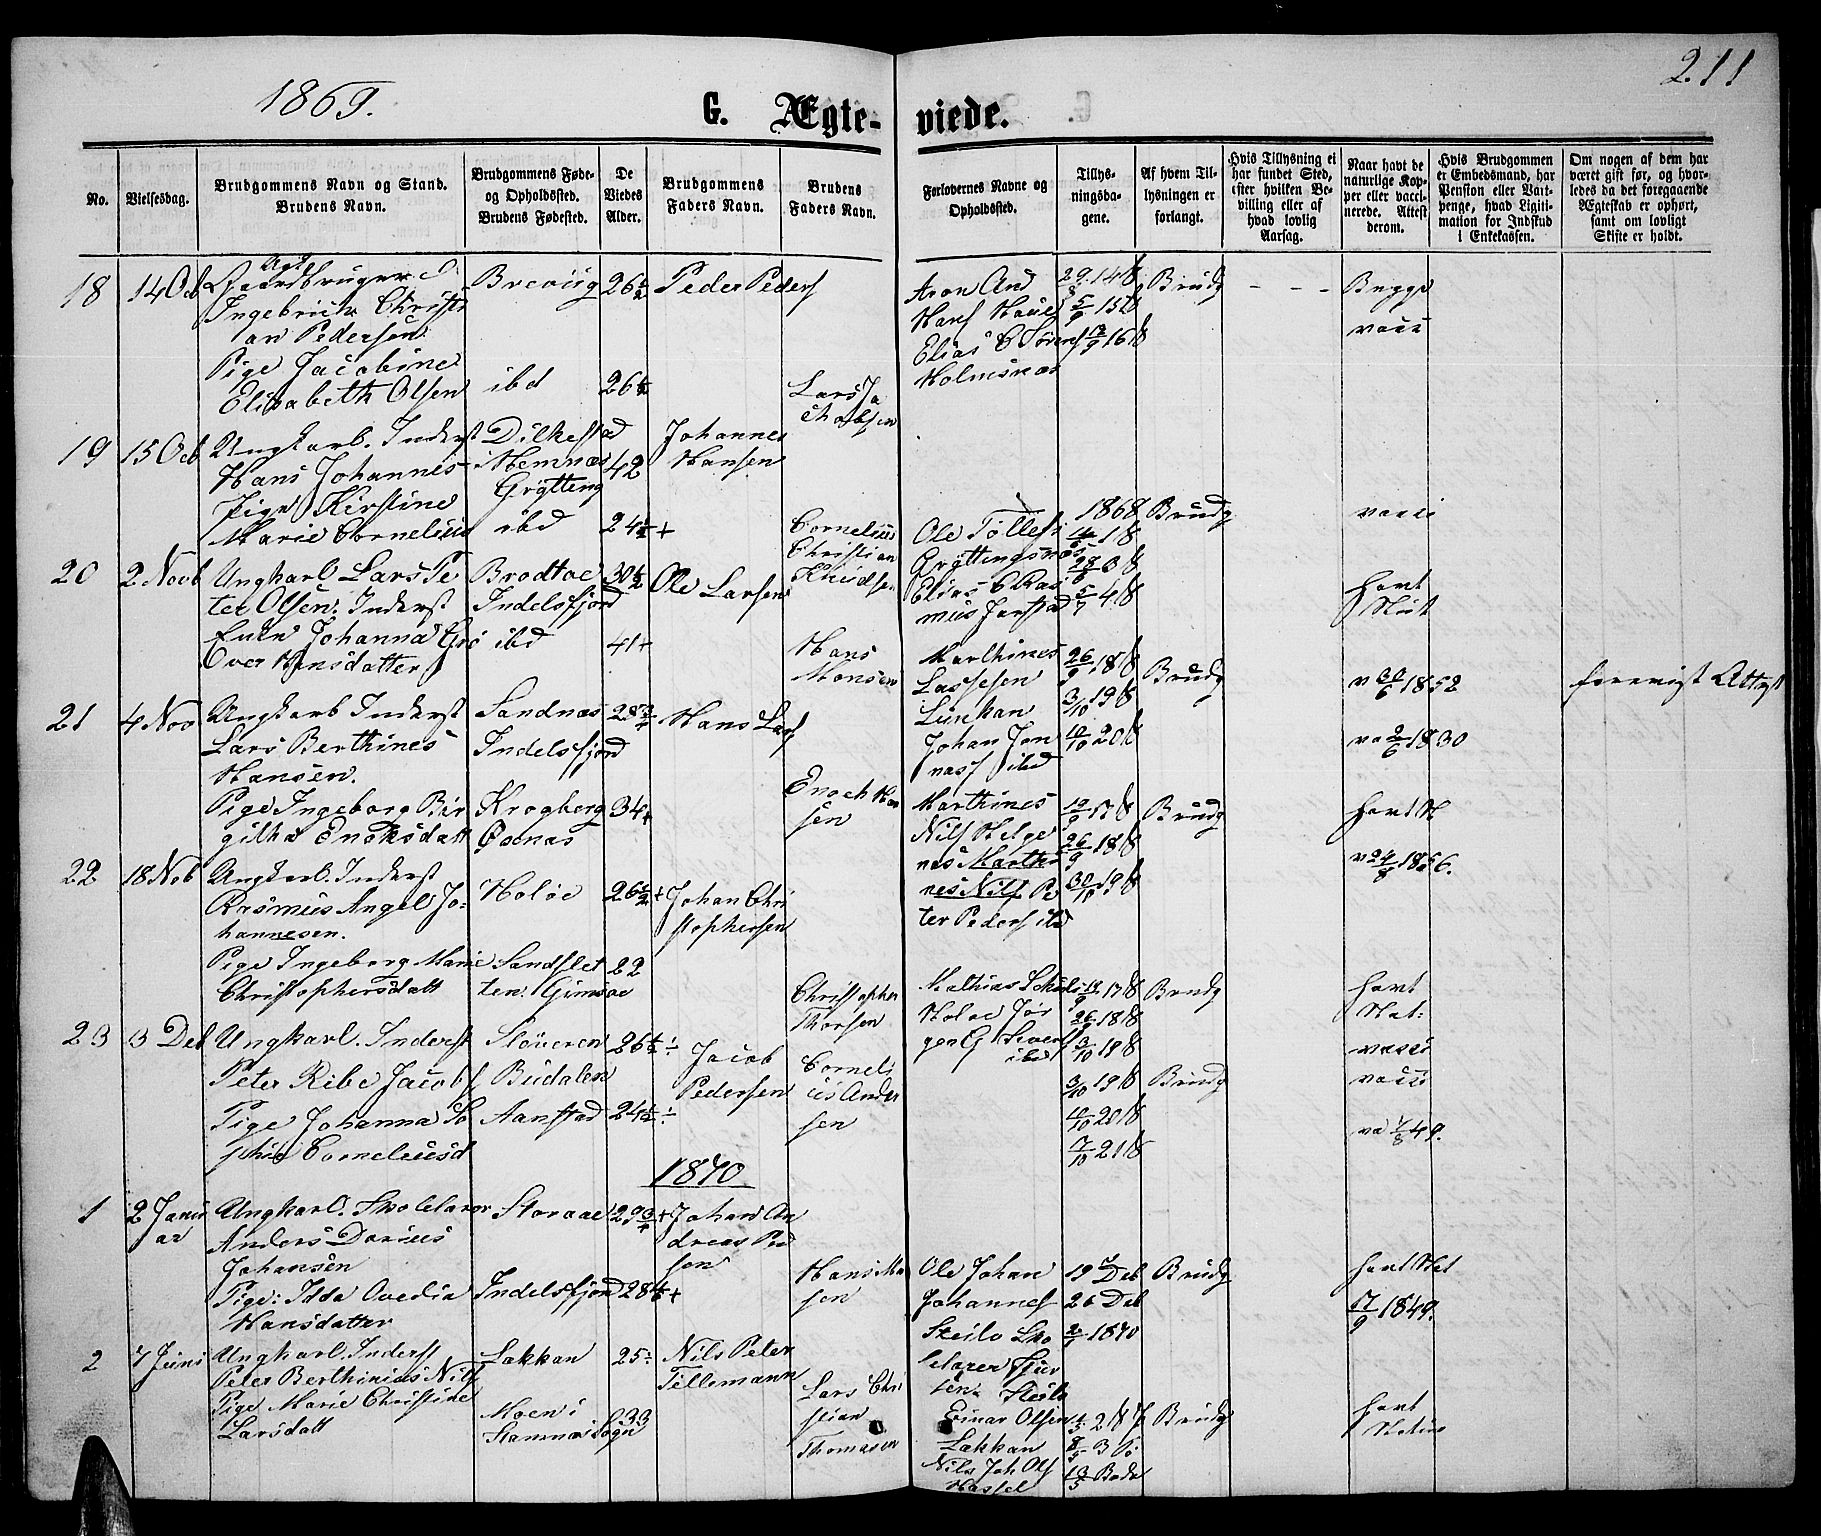 211
1869.
G. Ægte- viede.
No.
Vielsesdag.
Brudgommens Navn og Stand.
Brudens Navn.
Brudgommens Føde-
og Opholdssted.
Brudens Fødested.
De
Viedes
Alder.
Brudgommens
Faders Navn.
Brudens
Faders Navn.
Forlovernes Navne og
Opholdssted.
Tillys-
ningsda-
gene.
Af hvem Til-
lysningen er
forlangt.
Hvis Tillysning ei
har fundet Sted,
efter hvilken Be-
villing eller af
hvad lovlig
Aarsag.
Naar havt de
naturlige Kop-
per eller vacci-
nerede. Attest
derom.
Hvis Brudgommen
er Embedsmand, har
Pension eller Vart-
penge, hvad Ligiti-
mation for Indskud
i Enkekassen.
Om nogen af dem har
været gift før, og hvor-
ledes da det foregaaende
Ægteskab er ophørt,
samt om lovligt
Skifte er holdt.
18 14 Ocb Gaardbruger
Ingebrict Christi
an Pedersen
Pige Jacobine
Elisabeth Olsen
Breviig
ibd
26½
26½
Peder Peders
Lars Ja
chobsen
Aron And
Hans
Elias C Sørens
Holmsnæs
29/8 14 S
5/9 15 S
12/9 16 S
Brudg
- - -
Begge
vacc
19 15 Ocb Ungkarl. Inderst
Hans Johannes
Pige Kirstine
Marie Cornelius
Dilkestad
i Hemnæs
Grytting
ibd
42
24½ +
Johannes
Hansen
Cornelius
Christian
Knudsen
Ole Tollefs
Gryttingsnæs
Elias C Ras
mus Jarstad
1868
5/7 4 S
Brudg
vacci
havt
Nat
20 2 Novb Ungkarl Lars Pe
ter Olsen. Inderst
Enke Johanna Gro
Over Hansdatter
Brodtøe
Indelsfjord
ibd
30½
41 +
Ole Larsen
Hans
Monsen
Marthines
Lassesen
Lunkan
Johan Jon
nass ibd
26/9 18 S
3/10 19 S
10/10 20 S
Brudg
v 30/6 1852
va 2/6 1830
foreviist Attest
21 4 Nov Ungkarl Inderst
Lars Berthines
Hansen.
Pige Ingeborg Bir
githa Enoksdatt
Sandnæs
Indelsfjord
Krogberg
Øxnæs
28¾
34 +
Hans Lars
Enoch Han
sen
Marthines
Nils Helge
næs Marthi
nes Nils Pe
ter Peders ibd
19/9 17 S
26/9 18 S
30/10 19 S
Brudg
havt N
va 24/8 1856.
22 18 Nob Ungkarl. Inderst
Rasmus Angel Jo-
hannesen.
Pige Ingeborg Marie
Christophersdatt
Holøe
Sandslet
ten. Gimsøe
26½ +
22
Johan Chri
stophersen
Christopher
Thorsen
Mathias
Holøe Jør
gen G Sivers
ibd
19/9 17 S
26/9 18 S
3/10 19 S
Brudg
havt
Nat:
vacci
23 3 Deb Ungkarl. Inderst
Peter Ribe Jacobs
Pige Johanna So
phie Corneliusd
Støveren
Budalen
Aanstad
26½ ÷
24½ ÷
Jacob
Pedersen
Corneli
us Ander
sen
3/10 19 S
10/10 20 S
17/10 21 S
Brudg
vacci
va 7/8 49.
1870
1 2 Janu
ar
Ungkarl. Skolelærer
Anders Dorius
Johansen
Pige: Idda Ovedia
Hansdatter
Storaae
Indelsfjord
29¾ +
28½ +
Johan An
dreas Ped
sen
Hans Han
sen
Ole Johan
Johannes
Steilo Sko
lelærer Sjur
sen Steilo
19 Deb
26 Deb
2/1 1870
Brudg
havt Nat
17/9 1849.
2 7 Juni Ungkarl. Inderst
Peter Berthinius Nils
Pige Marie Christine
Larsdatt
Lakkan
Moen i
Stamnæs Sogn
25 ÷
33
Nils Peter
Tillemann
Lars Chri
stian
Thomasen
Einar Olsen
Lakkan
Nils Joh Ols
Hassel
Brudg
havt
Natur